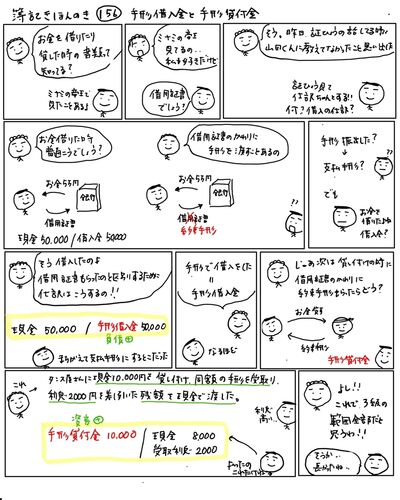 簿記きほんのき 156 手形借入金と手形貸付金
お金を借りたり
貸した時の書類って
知ってる?
ミナミの帝王で
見たことあるよ
ミナミの帝王
見てるの‥
私も好きだけど
借用証書
でしょう?
そう、昨日、証ひょうの話してる時に
山田くんに教えてなかったこと思い出した
証ひょう見て
仕訳ちゃんとするよ!
何?借入の仕訳?
お金借りた時
普通こうでしょう?
お金5万円
銀行
借用証書
現金 50,000 / 借入金 50,000
借用証書のかわりに
手形を渡すことあるの
お金5万円
銀行
借用証書
約束手形
手形振出した?
↓
支払手形?
でも
お金を
借りたよね
借入金?
そう借入したのよ
借用証書もらったのと区別するために
仕訳はこうするの!!
現金 50,000 / 手形借入金 50,000
負債+
まちがえて支払手形にするとこだった
手形で借入をした
=
手形借入金
なるほど
じゃあ次は貸し付けの時に
借用証書のかわりに
約束手形もらったらどう?
お金貸す
約束手形
手形貸付金
これ
タンス屋さんに現金10,000円を貸し付け、同額の手形を受取り、
利息2,000円を差引いた残額を現金で渡した。
資産+
手形貸付金 10,000 / 現金 8,000
受取利息 2,000
利息
高い
よし!!
これで3級の
範囲全部だと
思うわ!!
そうか‥
長かったね‥